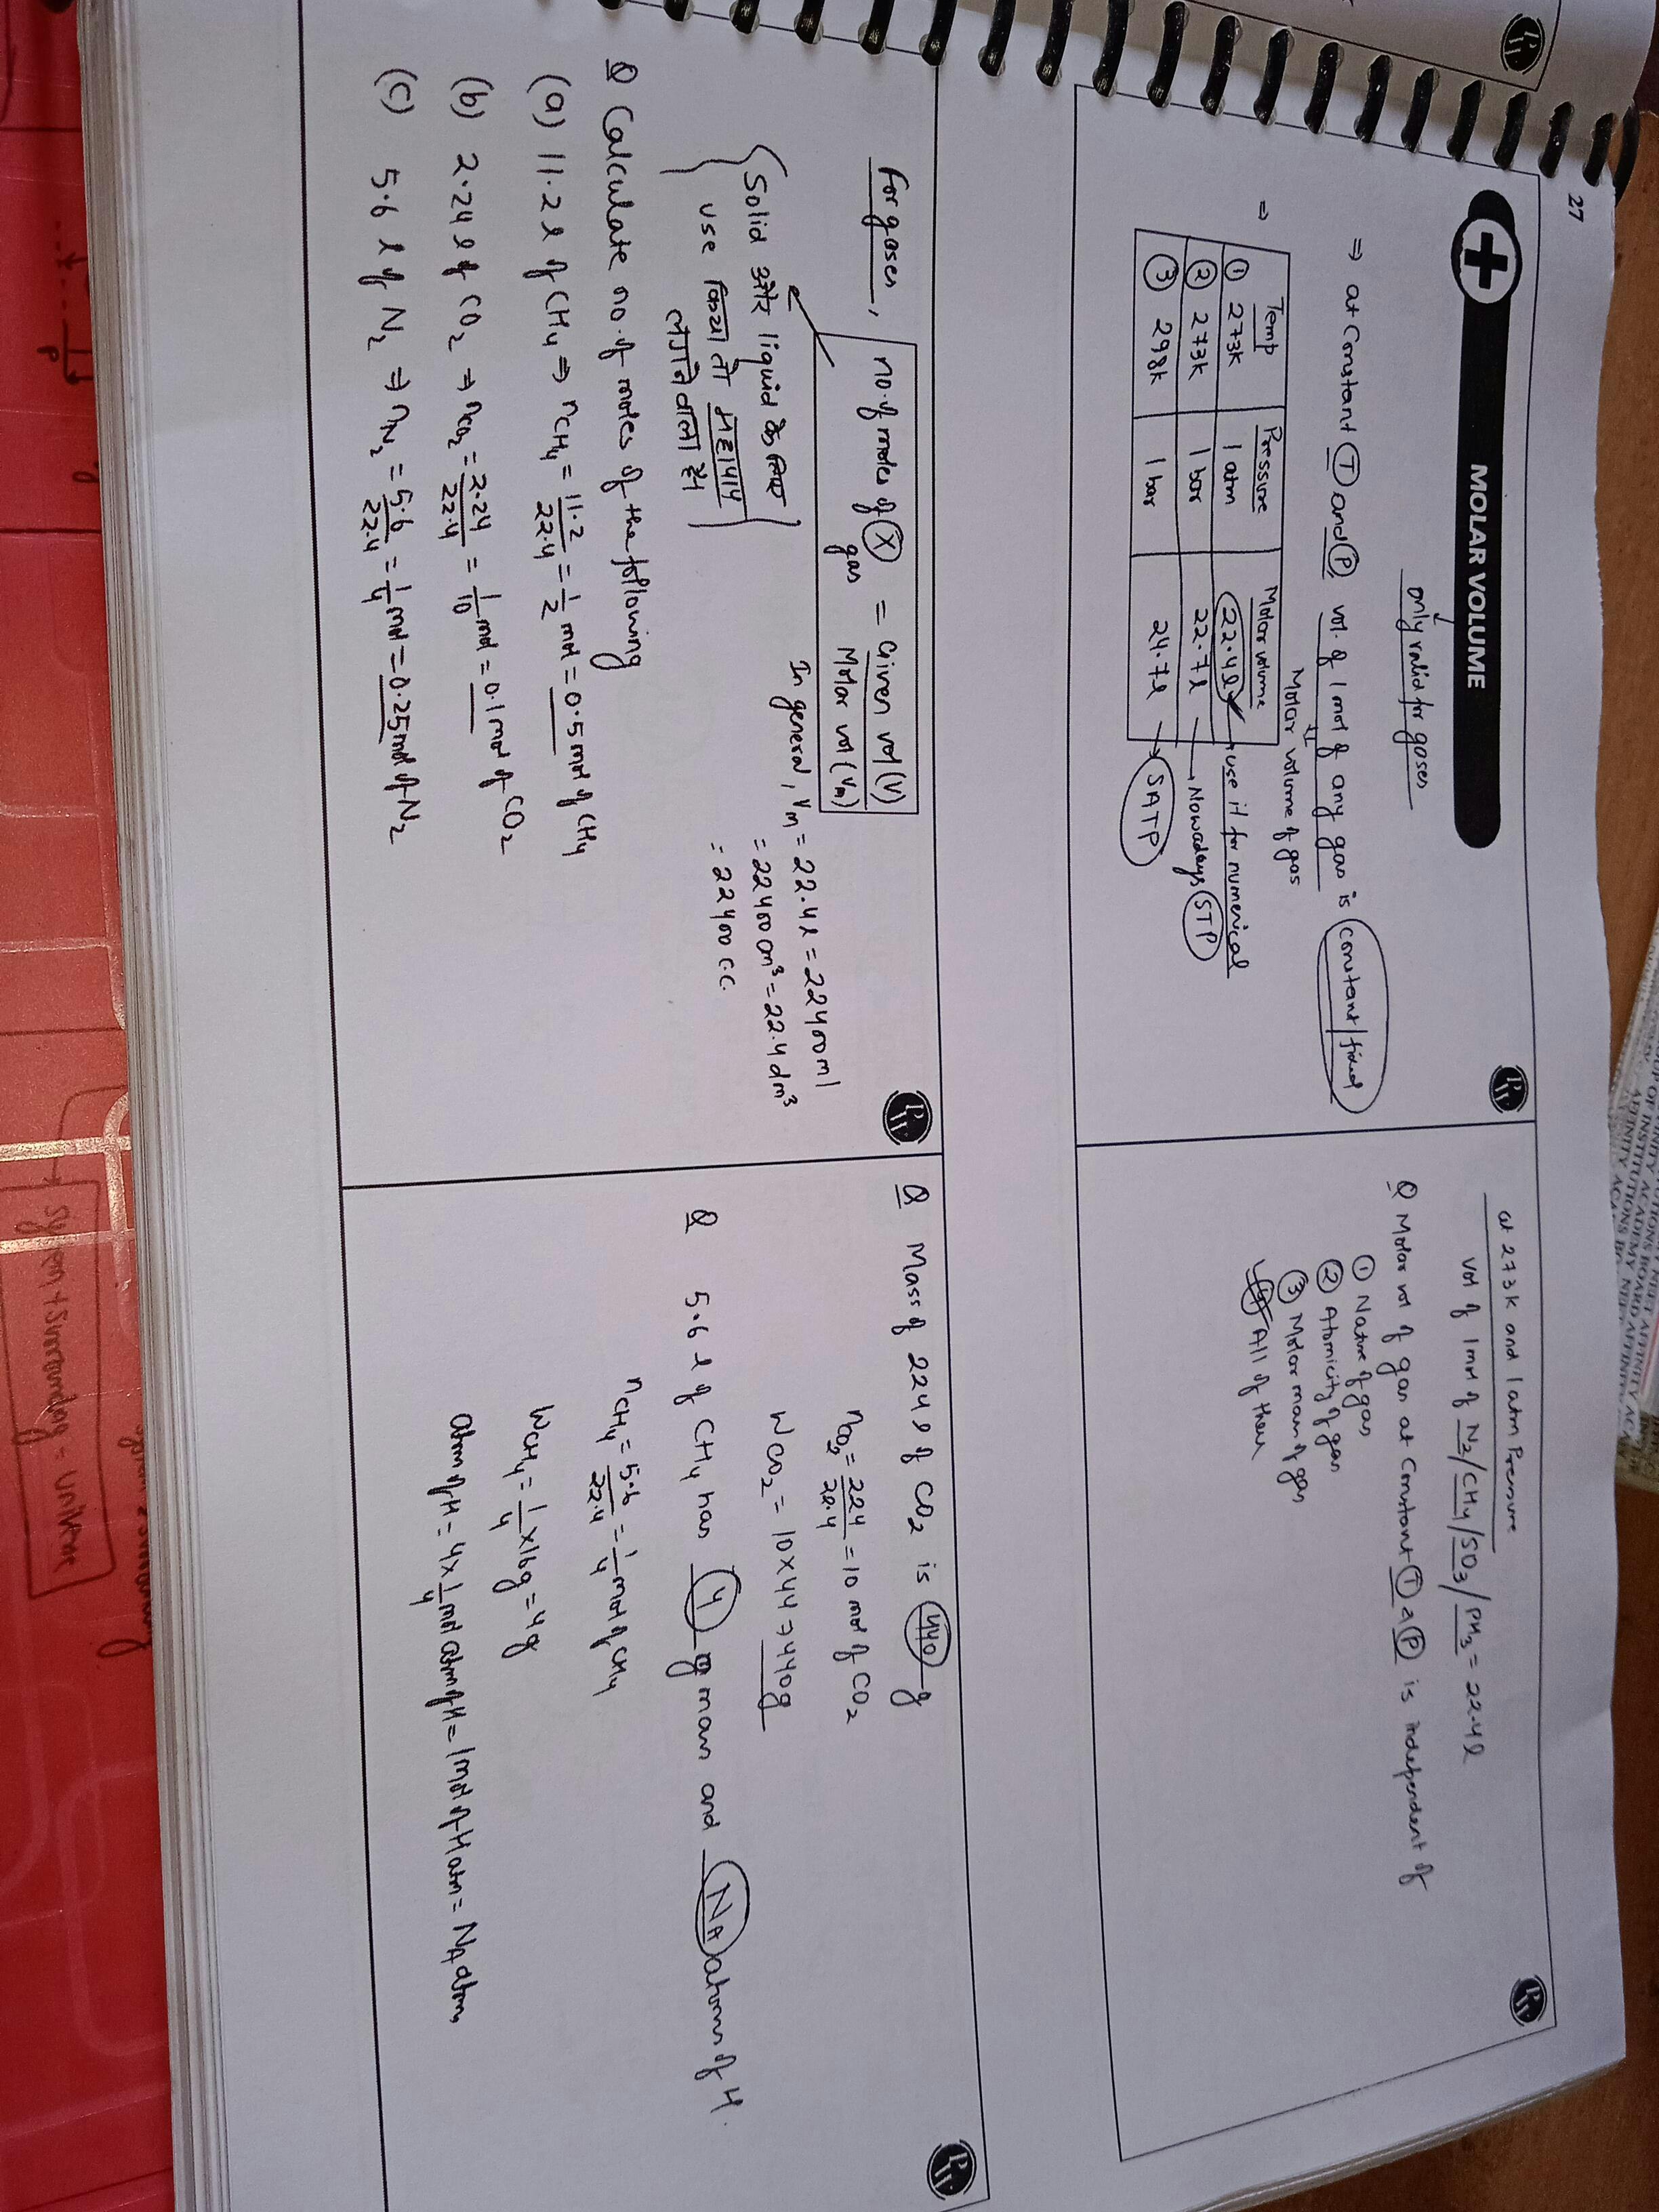 27
MOLAR VOLUME
only valid for gases
⇒ at Constant T and P, vol. of 1 mol of any gas is constant/fixed
Molar volume of gas
⇒
Temp Pressure Molar volume
① 273K 1 atm 22.4 l → use it for numerical
② 273K 1 bar 22.7 l → Nowadays STP
③ 298K 1 bar 24.7 l → SATP
at 273K and 1 atm Pressure
vol of 1 mol of N2/CH4/SO3/PH3 = 22.4 l
Q Molar vol of gas at Constant T & P is independent of
① Nature of gas
② Atomicity of gas
③ Molar mass of gas
④ All of these
For gases, no. of moles of X gas = Given vol (V) / Molar vol (Vm)
{Solid और liquid के लिए
use किया तो महापाप
लगने वाला है।}
In general, Vm = 22.4 l = 22400 ml
= 22400 cm³ = 22.4 dm³
= 22400 c.c.
Q Calculate no. of moles of the following
(a) 11.2 l of CH4 ⇒ nCH4 = 11.2/22.4 = 1/2 mol = 0.5 mol of CH4
(b) 2.24 l of CO2 ⇒ nCO2 = 2.24/22.4 = 1/10 mol = 0.1 mol of CO2
(c) 5.6 l of N2 ⇒ nN2 = 5.6/22.4 = 1/4 mol = 0.25 mol of N2
Q Mass of 224 l of CO2 is 440 g
nCO2 = 224/22.4 = 10 mol of CO2
WCO2 = 10×44 ⇒ 440g
Q 5.6 l of CH4 has 4 g mass and NA atoms of H.
nCH4 = 5.6/22.4 = 1/4 mol of CH4
WCH4 = 1/4 × 16g = 4g
atom of H = 4× 1/4 mol atom of H = 1 mol of H atom = NA atoms
System + Surrounding = Universe